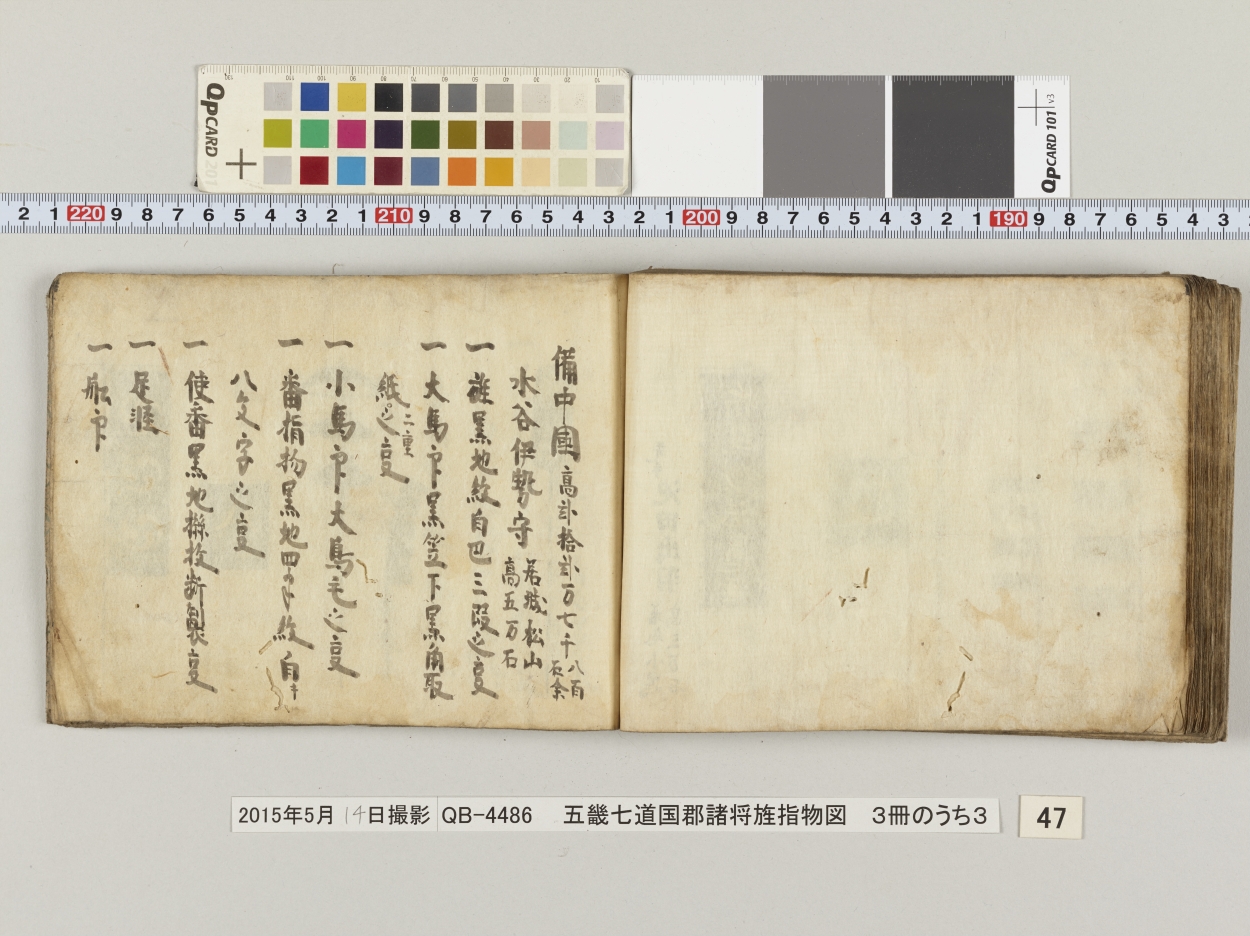 QPCARD 201
QPCARD 101 v3
2 1 220 9 8 7 6 5 4 3 2 1 210 9 8 7 6 5 4 3 2 1 200 9 8 7 6 5 4 3 2 1 190 9 8 7 6 5 4 3
備中國 高弐拾弐万七千八百石余
水谷伊勢守 居城松山 高五万石
一 旌黒地紋白巴三段之㕝
一 大馬印黒笠下黒角取
紙二重之㕝
一 小馬印大鳥毛之㕝
一 番指物黒地四半紋白キ
八文字之㕝
一 使番黒地折製㕝
一 足涯
一 船印
2015年5月14日撮影 QB-4486 五畿七道国郡諸将旌指物図 3冊のうち3
47